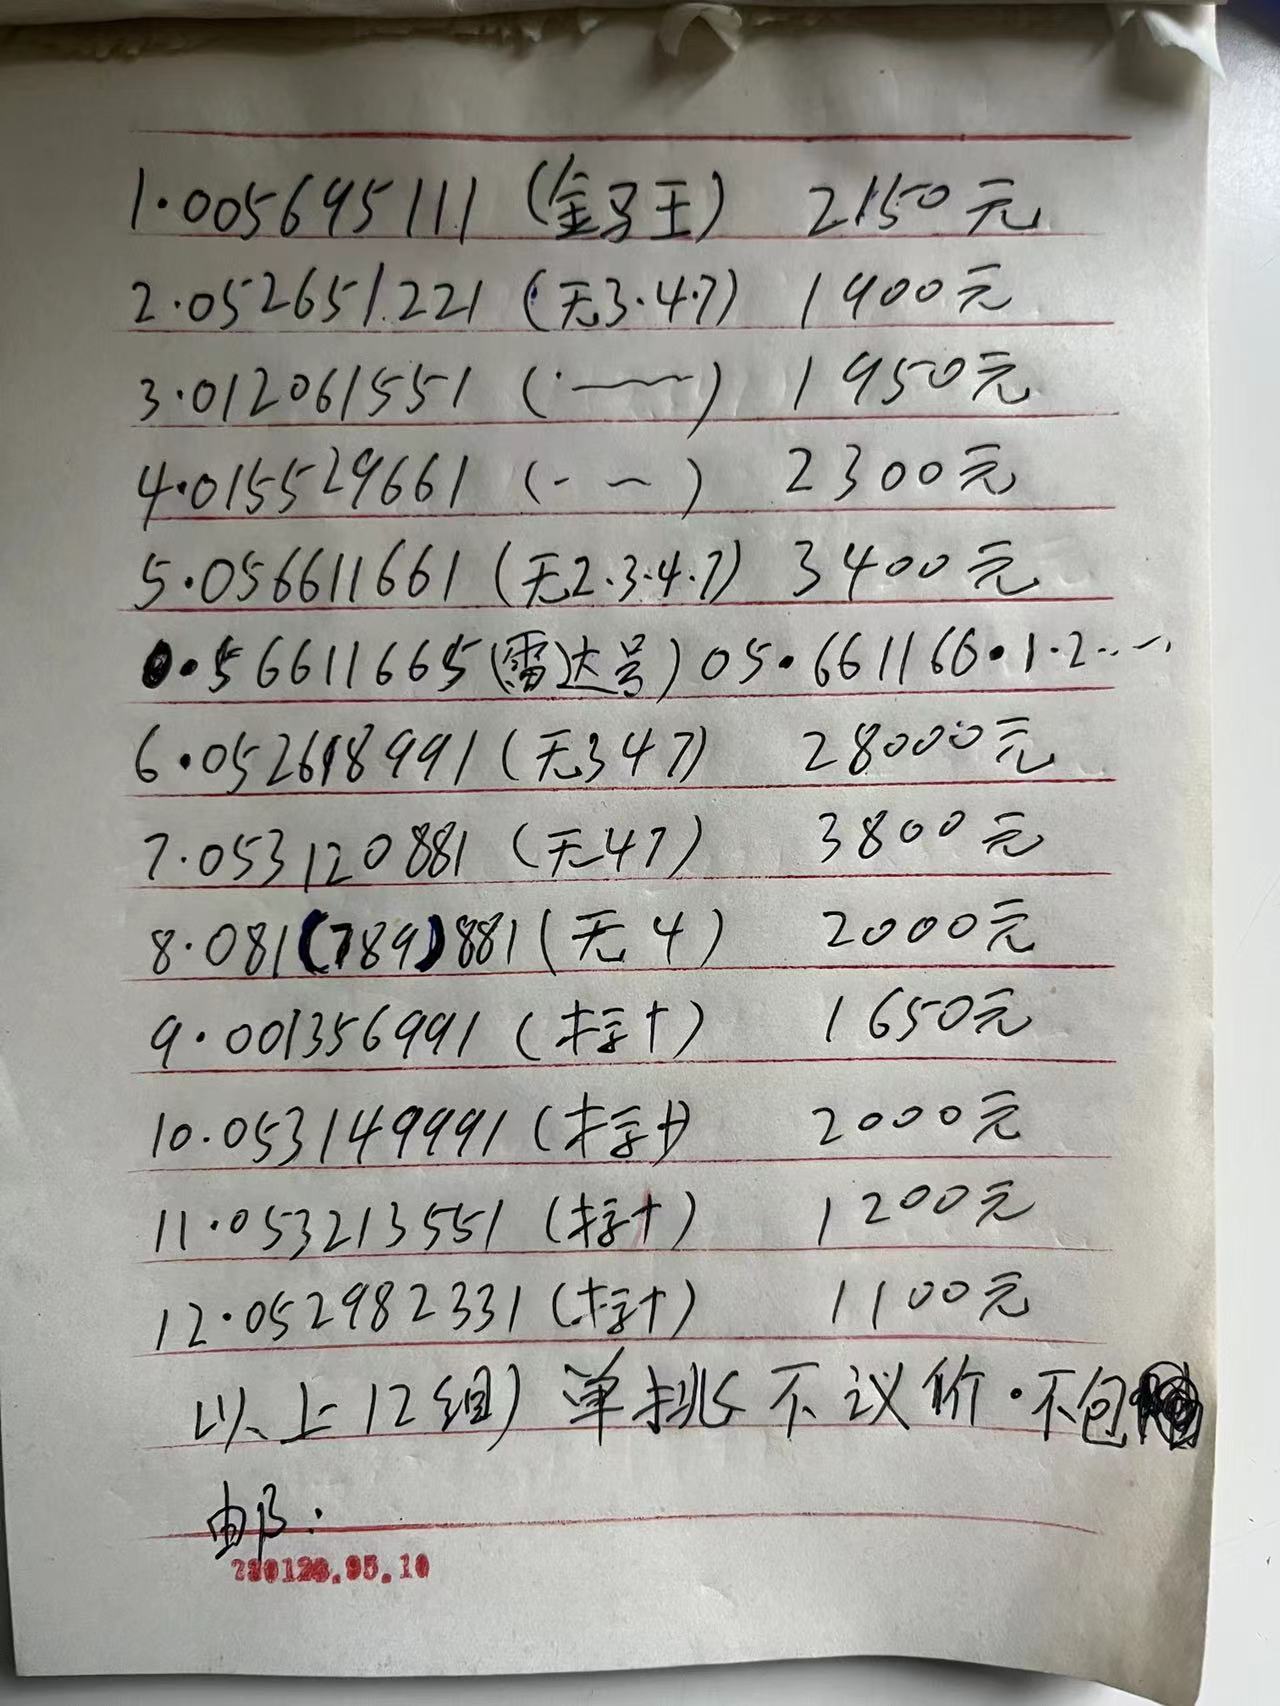 1·005695111 (金马王) 2150元
2·052651221 (无3·4·7) 1900元
3·012061551 ( ) 1950元
4·015529661 ( ) 2300元
5·056611661 (无2·3·4·7) 3400元
0·56611665 (雷达号) 05·661166·1·2……
6·052618991 (无347) 28000元
7·053120881 (无47) 3800元
8·081(789)881 (无4) 2000元
9·001356991 (标十) 1650元
10·053149991 (标十) 2000元
11·053213551 (标十) 1200元
12·052982331 (标十) 1100元
以上12组) 单挑不议价·不包
邮:
.95.10